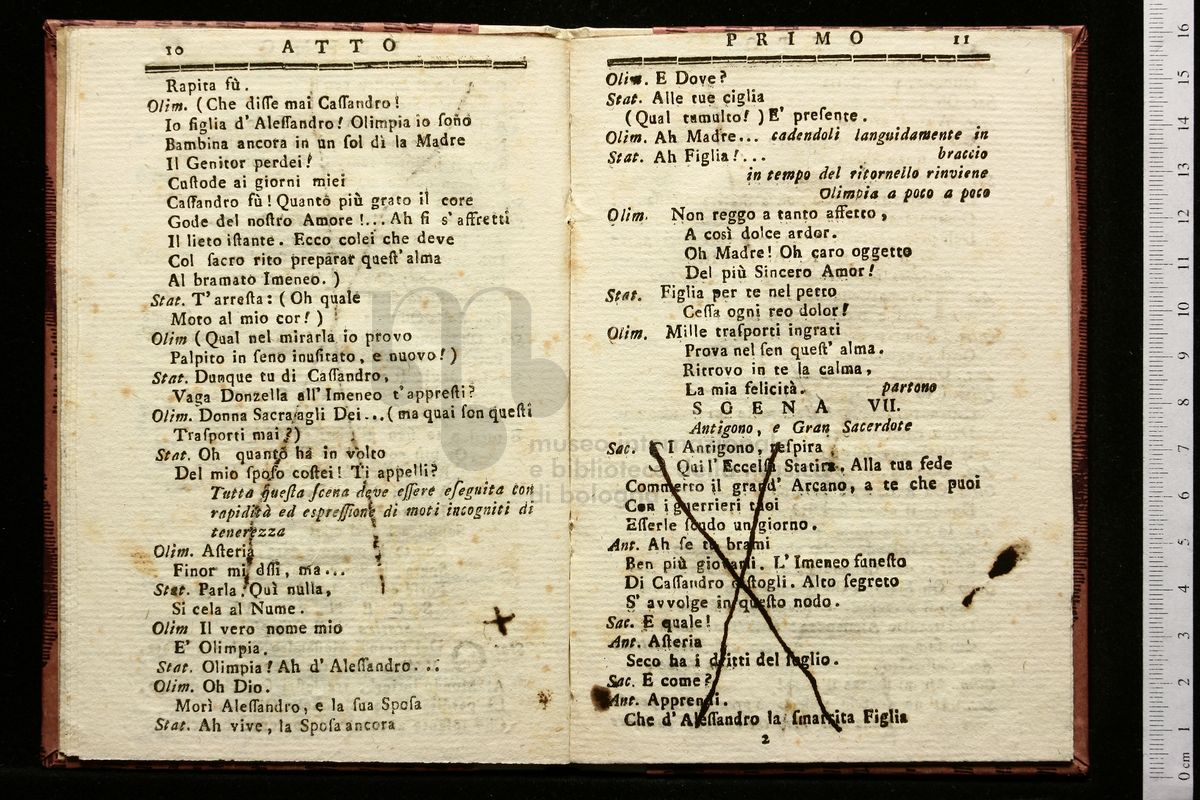 10 ATTO
Rapita fù.
Olim. (Che disse mai Cassandro!
Io figlia d' Alessandro! Olimpia io sono
Bambina ancora in un sol dì la Madre
Il Genitor perdei!
Custode ai giorni miei
Cassandro fù! Quanto più grato il core
Gode del nostro Amore!... Ah si s' affretti
Il lieto istante. Ecco colei che deve
Col sacro rito preparar quest' alma
Al bramato Imeneo.)
Stat. T' arresta: (Oh quale
Moto al mio cor!)
Olim (Qual nel mirarla io provo
Palpito in seno inusitato, e nuovo!)
Stat. Dunque tu di Cassandro,
Vaga Donzella all' Imeneo t' appresti?
Olim. Donna Sacra agli Dei...(ma quai son questi
Trasporti mai?)
Stat. Oh quanto ha in volto
Del mio sposo costei! Ti appelli?
Tutta questa scena deve essere eseguita con
rapidità ed espressione di moti incogniti di
tenerezza
Olim. Asteria
Finor mi dssi, ma...
Stat. Parla. Quì nulla,
Si cela al Nume.
Olim Il vero nome mio
E' Olimpia.
Stat. Olimpia! Ah d' Alessandro...
Olim. Oh Dio.
Morì Alessandro, e la sua Sposa
Stat. Ah vive, la Sposa ancora
PRIMO 11
Olim. E Dove?
Stat. Alle tue ciglia
(Qual tumulto!) E' presente.
Olim. Ah Madre... cadendoli languidamente in
Stat. Ah Figlia!... braccio
in tempo del ritornello rinviene
Olimpia a poco a poco
Olim. Non reggo a tanto affetto,
A così dolce ardor.
Oh Madre! Oh caro oggetto
Del più Sincero Amor!
Stat. Figlia per te nel petto
Cessa ogni reo dolor!
Olim. Mille trasporti ingrati
Prova nel sen quest' alma.
Ritrovo in te la calma,
La mia felicità. partono
SCENA VII.
Antigono, e Gran Sacerdote
Sac. E I Antigono, respira
Qui l' Eccelsa Statira. Alla tua fede
Commetto il grand' Arcano, a te che puoi
Con i guerrieri tuoi
Esserle scudo un giorno.
Ant. Ah se tu brami
Ben più giovarli. L' Imeneo funesto
Di Cassandro distogli. Alto segreto
S' avvolge in questo nodo.
Sac. E quale!
Ant. Asteria
Seco ha i dritti del soglio.
Sac. E come?
Ant. Apprendi.
Che d' Alessandro la smarrita Figlia
2
museo internazionale
e biblioteca
di bologna
16
15
14
13
12
11
10
9
8
7
6
5
4
3
2
1
0 cm